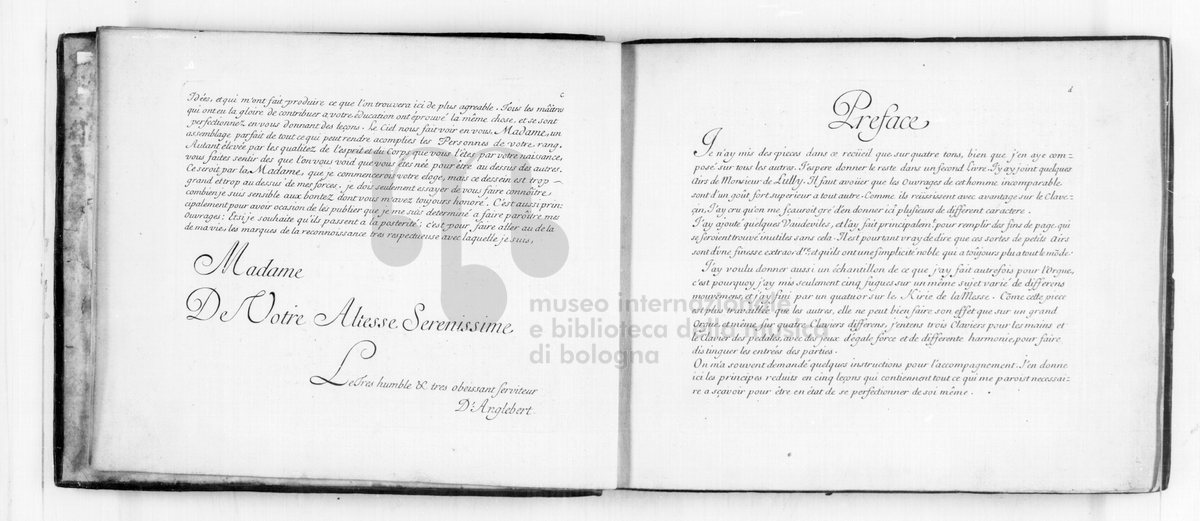 c
Idées, et qui m'ont fait produire ce que l'on trouvera ici de plus agreable. Tous les màitres
qui ont eu la gloire de contribuer a votre éducation ont éprouvé la même chose, et se sont
perfectionnez en vous donnant des leçons. Le Ciel nous fait voir en vous, Madame, un
assemblage parfait de tout ce qui peut rendre acomplies les Personnes de votre rang.
Autant élevée par les qualitez de l'esprit et du Corps que vous l'êtes par votre naissance,
vous faites sentir dès que l'on vous void que vous êtes née pour être au dessus des autres.
Ce seroit par la Madame, que je commencerois votre eloge, mais ce dessein est trop
grand et trop au dessus de mes forces. je dois seulement essayer de vous faire connoître,
combien je suis sensible aux bontez dont vous m'avez toujours honoré. C'est aussi prin:
cipalement pour avoir ocasion de les publier que je me suis determiné a faire paroître mes
Ouvrages: Et si je souhaite qu'ils passent a la posterité; c'est pour faire aller au de la
de ma vie, les marques de la reconnoissance tres respectueuse avec laquelle je suis,
Madame
De Votre Altesse Serenissime,
Le tres humble & tres obeissant serviteur
D'Anglebert
d
Preface
Je n'ay mis des pieces dans ce recüeil que sur quatre tons, bien que j'en aye com-
posé sur tous les autres. J'espere donner le reste dans un second livre. J'y ay joint quelques
Airs de Monsieur de Lully. Il faut avoüer que les Ouvrages de cet homme incomparable
sont d'un goût fort superieur a tout autre. Comme ils réüssissent avec avantage sur le Clave-
çin, J'ay cru qu'on me sçauroit gré d'en donner ici plusieurs de different caractere.
J'ay ajouté quelques Vaudevilles, et l'ay fait principalemt. pour remplir des fins de page, qui
se seroient trouvé inutiles sans cela. Il est pourtant vray de dire que ces sortes de petits Airs
sont d'une finesse extraordre. et qu'ils ont une simplicité noble qui a toûjours plu a tout le mõde.
J'ay voulu donner aussi un échantillon de ce que j'ay fait autrefois pour l'Orgue,
c'est pourquoy j'ay mis seulement cinq fugues sur un même sujet varié de differens
mouvemens, et j'ay fini par un quatuor sur le Kirie de la Messe. Cõme cette piece
est plus travaillée que les autres, elle ne peut bien faire son effet que sur un grand
Orgue, et même sur quatre Claviers differens, j'entens trois Claviers pour les mains et
le Clavier des pedales, avec des jeux d'egale force et de differente harmonie, pour faire
distinguer les entrées des parties.
On m'a souvent demandé quelques instructions pour l'accompagnement. J'en donne
ici les principes reduits en cinq leçons qui contiennent tout ce qui me paroist necessai-
re a sçavoir pour être en état de se perfectionner de soi même.
museo internazionale
e biblioteca della musica
di bologna